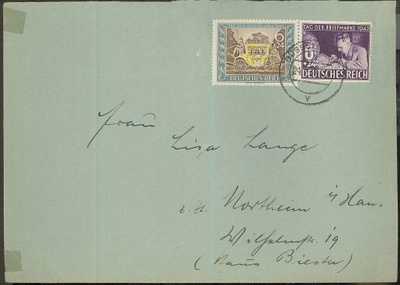 TAG DER BRIEFMARKE 1942
DEUTSCHES REICH
DEUTSCHES REICH
Frau
Lisa Lange
z. Zt. Northeim i/Han.
Wilhelmstr. 19
(Haus Biester)